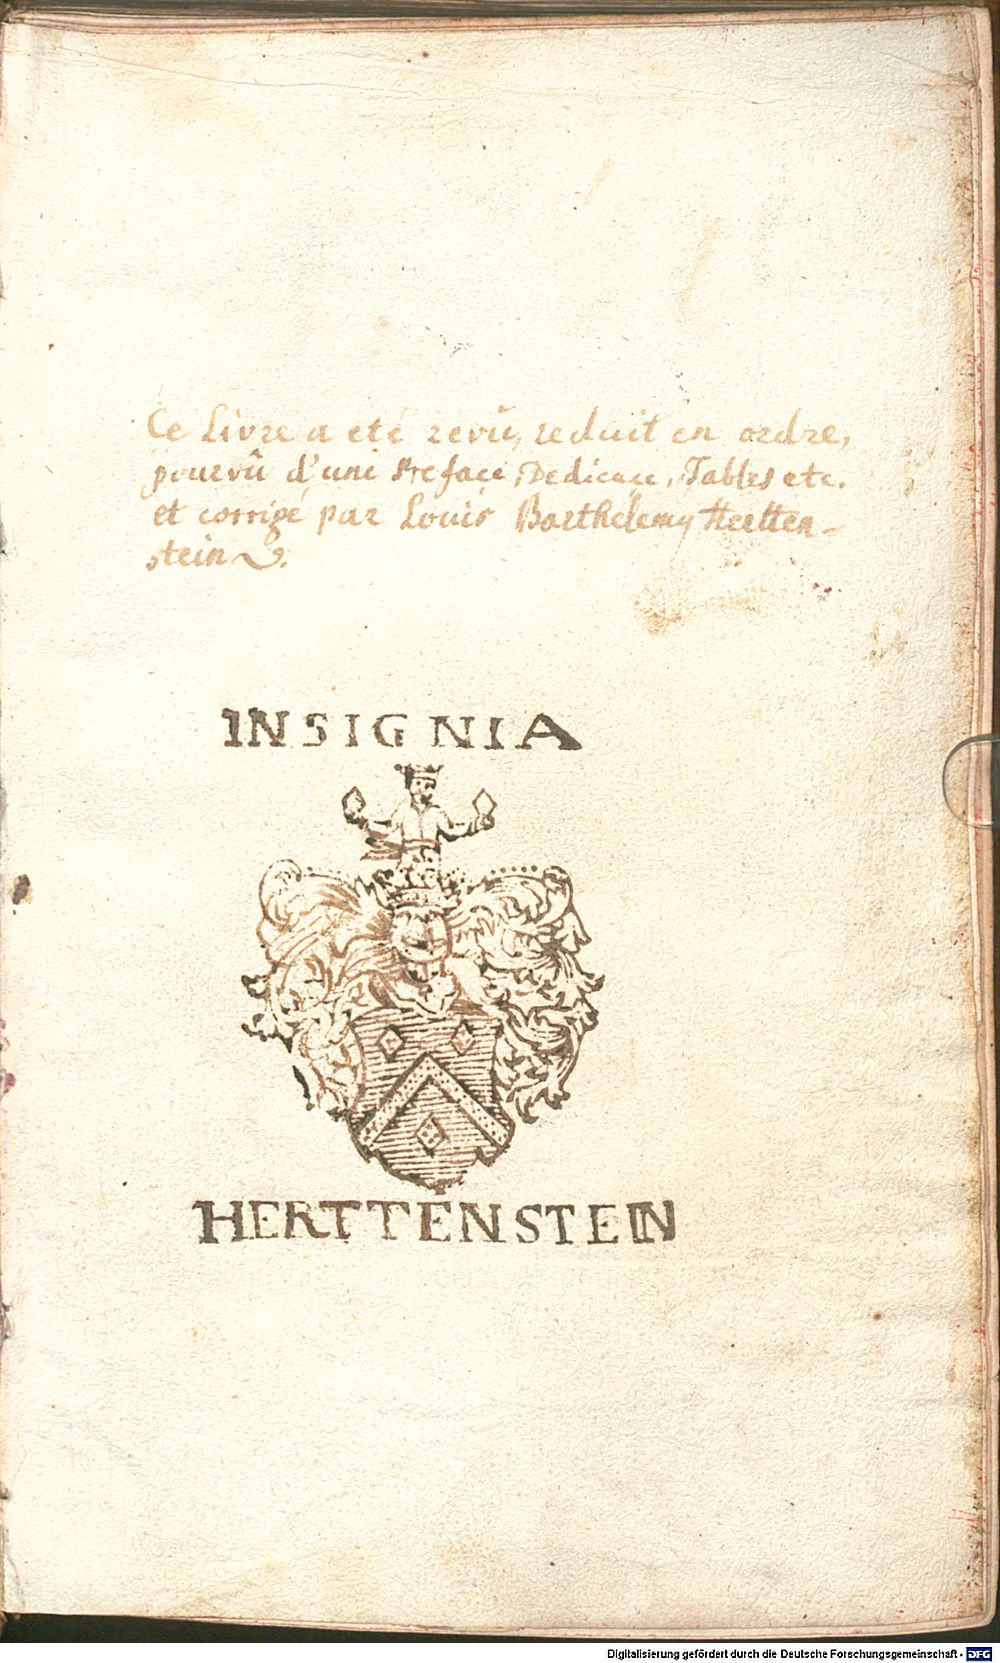 Ce Livre a eté revû, reduit en ordre,
pourvû d'une Preface, Dedicace, Tables etc.
et corrigé par Louis Barthelemy Hertten-
stein.
INSIGNIA
HERTTENSTEIN
Digitalisierung gefördert durch die Deutsche Forschungsgemeinschaft - DFG